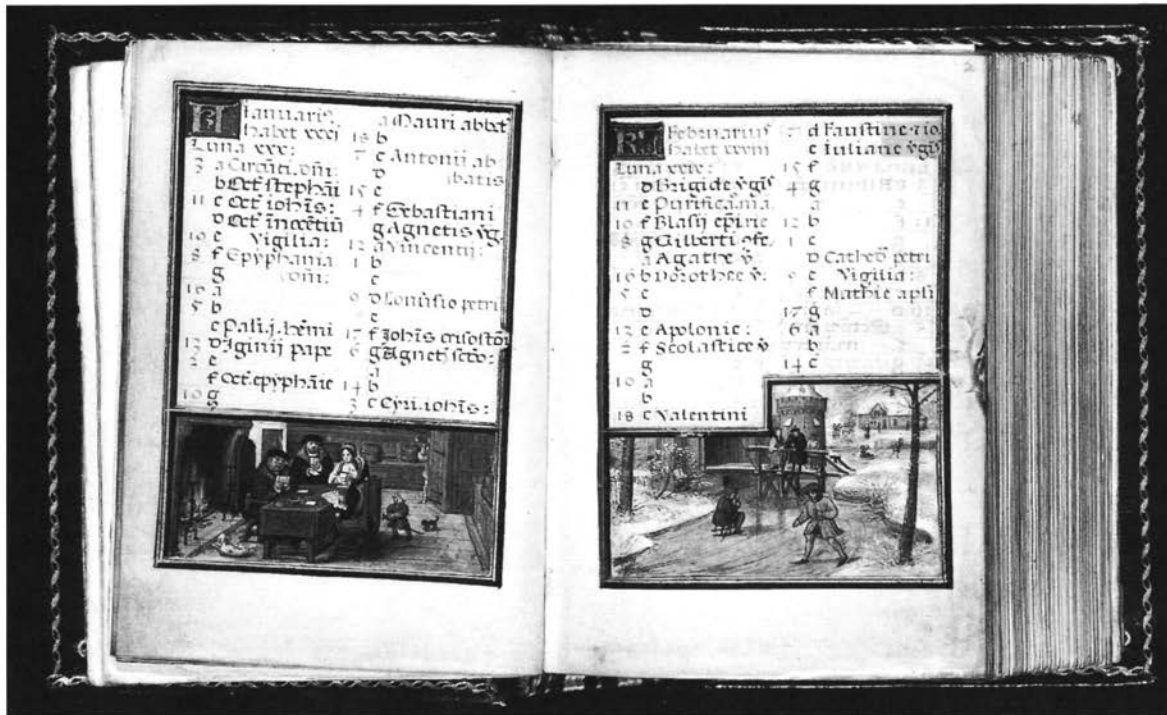 Ianuariꝰ
habet xxxj
Luna xxx:
3 a Circūci. dn̄i:
b Oct̄ stephāi
11 c Oct̄ iohīs:
d Oct̄ īnocētiū
e Vigilia:
8 f Epyphania
g dn̄i:
16 a
5 b
c Pauli. j. hēmi
13 d Iginij pape
2 e
f Oct̄. epyphāie
10 g
a Mauri abbat̄
18 b
7 c Antonij ab
d batis
15 e
4 f Sebastiani
g Agnetis v̄g.
12 a Vincentij:
1 b
c
9 d Conūsio petri
e
17 f Iohīs crisostōi
6 g Agnet̄ scd̄o:
a
14 b
3 c Cyri. iohīs:
2
KL Februarius
habet xxviij
Luna xxix:
d Brigide v̄gīs
11 e Purifica. ma.
f Blasij ep̄i
8 g Gilberti cōfe.
a Agathe v̄.
16 b Dorothee v̄.
5 c
d
13 e Apolonie:
2 f Scolastice v̄
g
10 a
b
18 c Valentini
d Faustine ⁊ io.
e Iuliane v̄gīs
15 f
4 g
a
12 b
1 c
d Cathed̄ petri
9 e Vigilia:
f Mathie apl̄i
17 g
6 a
b
14 c